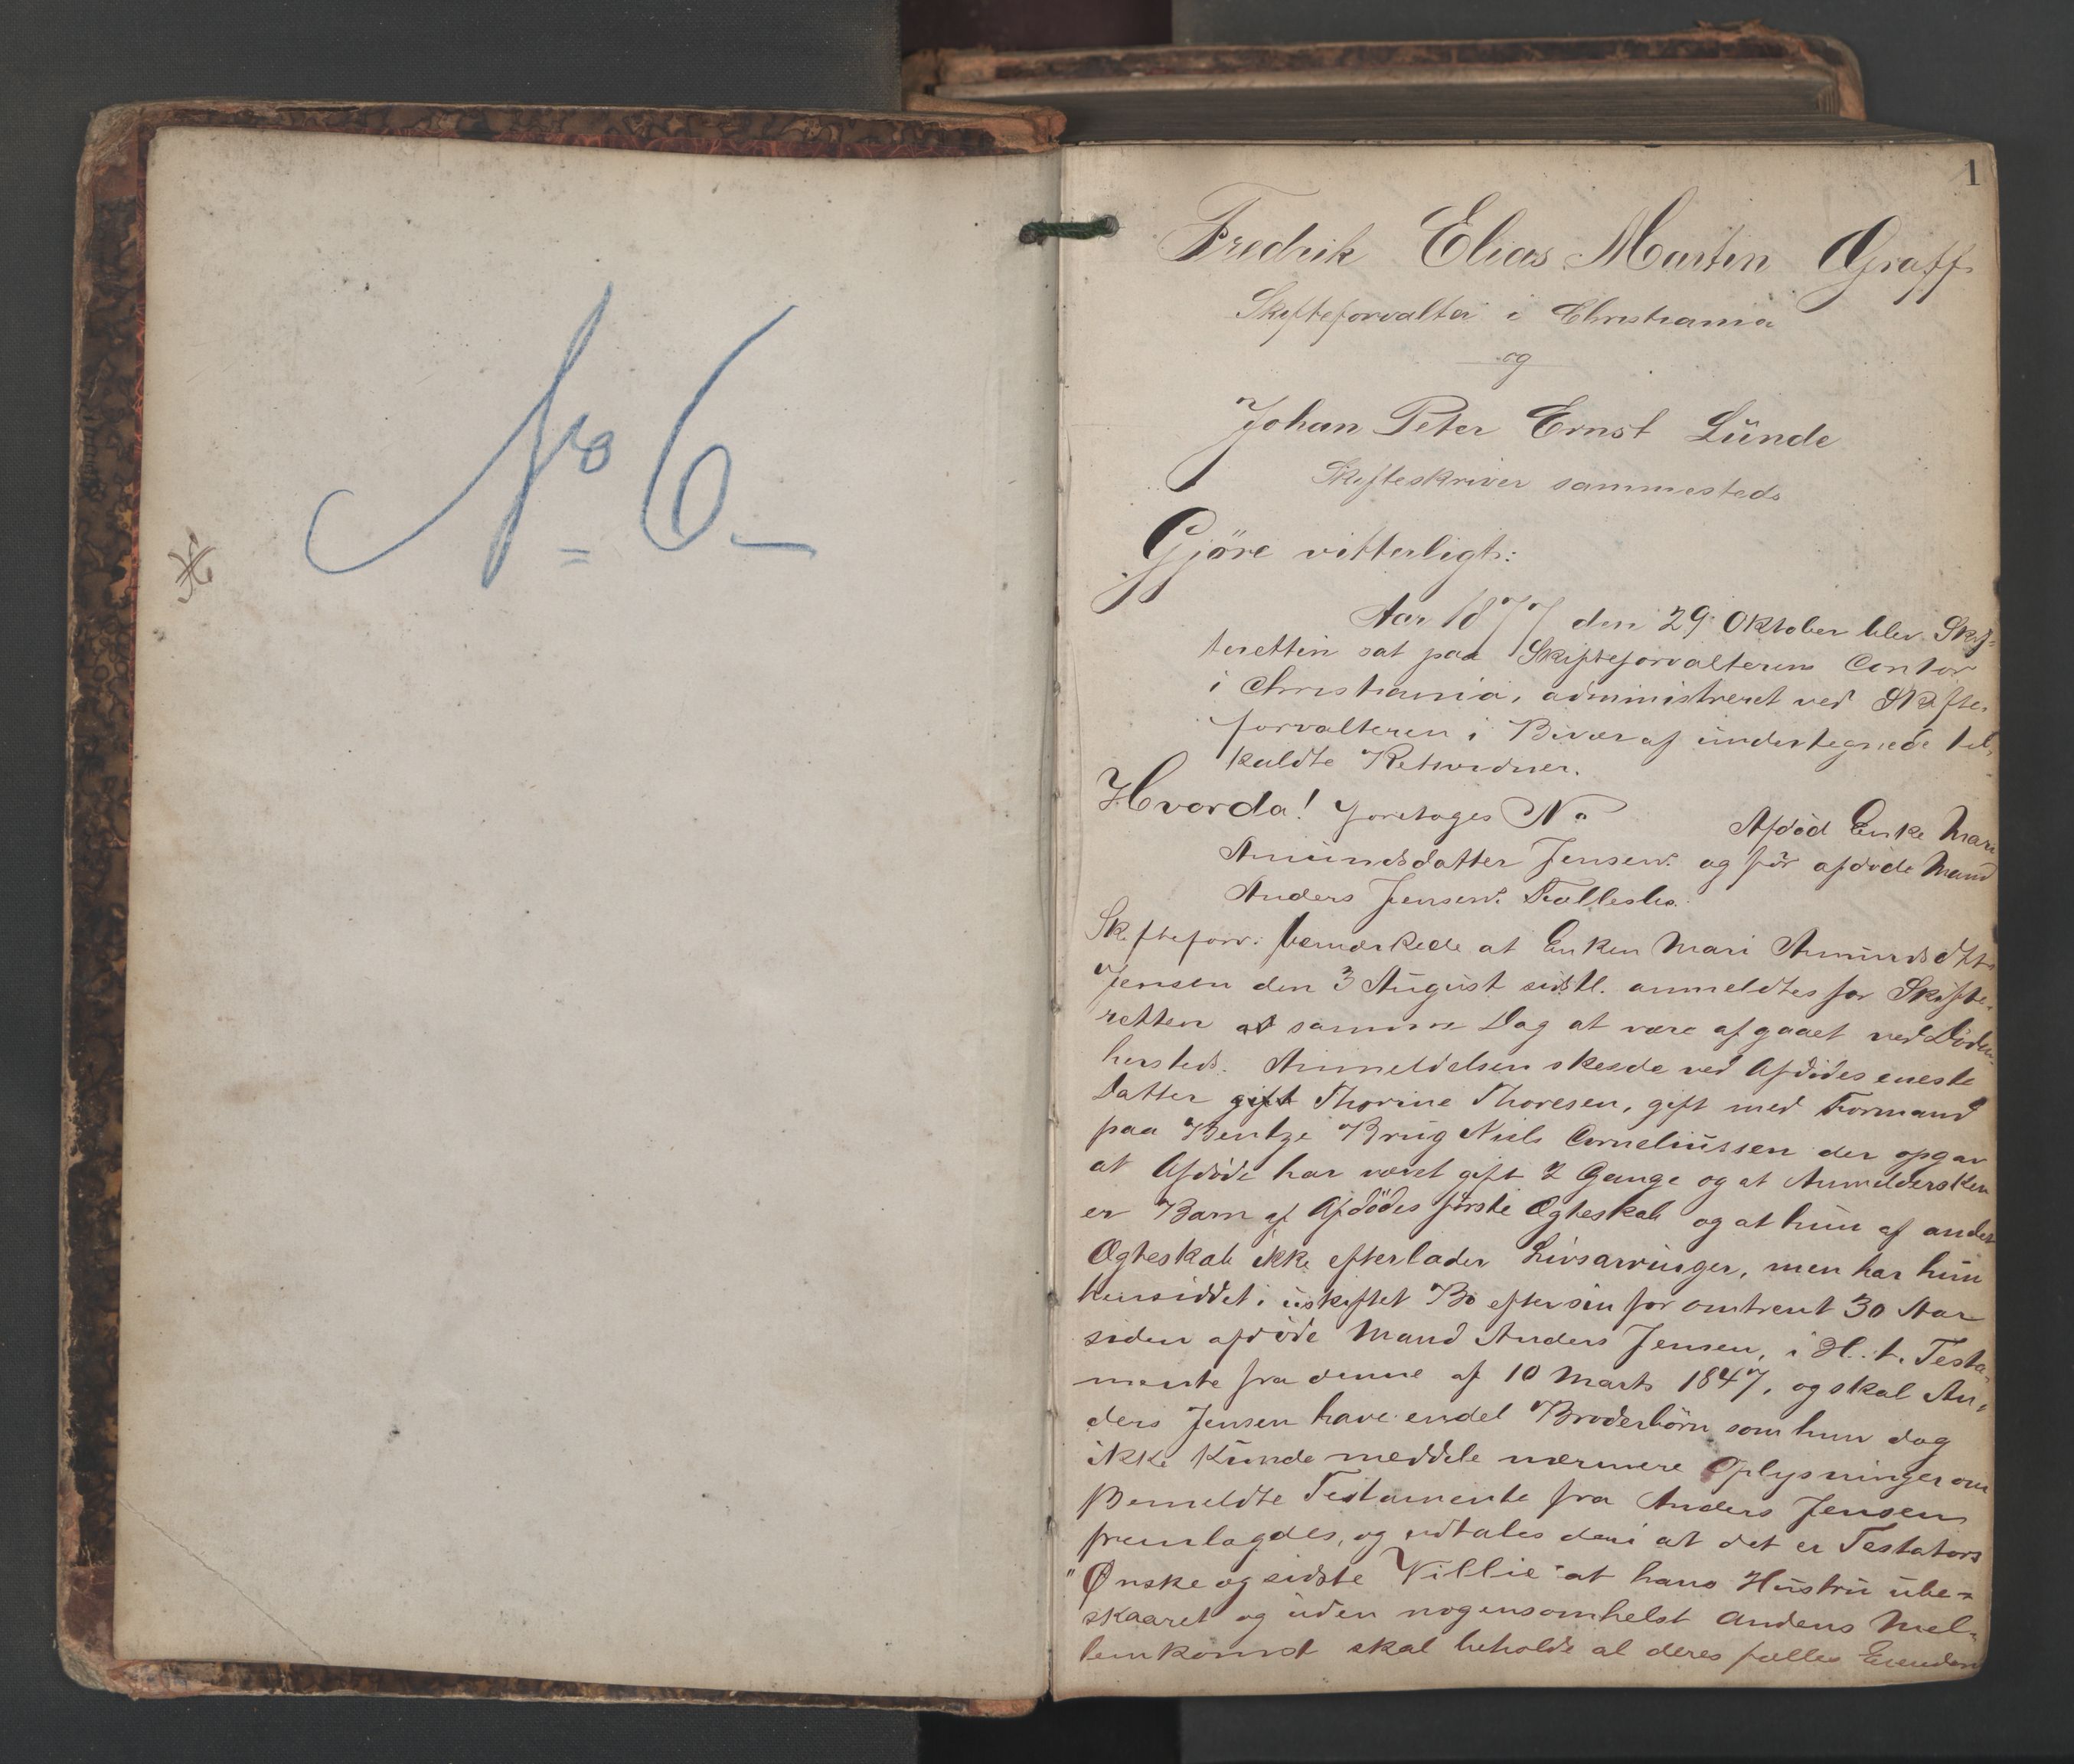 No 6
1
Fredrik Elias Martin Graff
Skifteforvalter i Christiania
og
Johan Peter Ernst Lünde
Skifteskriver sammesteds
Gjöre vitterligt:
Aar 1877 den 29 Oktober blev Skif-
teretten sat paa Skifteforvalterens Contor
i Christiania, administreret ved Skifte-
forvalteren i Bivær af undertegnede til-
kaldte Retsvidner.
Hvorda! foretoges No Afdöd Enke Mari
Amundsdatter Jensen og för afdöde Mand
Anders Jensens Fællesbo.
Skifteforv. bemærkede at Enken Mari Amundsdtr
Jensen den 3 August sidstl. anmeldtes for Skifte-
retten samme Dag at være afgaaet ved Döden
hersteds. Anmeldelsen skeede ved Afdödes eneste
Datter gift Thorine Thoresen, gift med Formand
paa Bentze Brug Niels Corneliussen der opgav
at Afdöde har været gift 2 Gange og at Anmeldersken
er Barn af Afdödes förste Ægteskab og at hun af andet
Ægteskab ikke efterlader Livsarvinger, men har hun
hensiddet i uskiftet Bo efter sin for omtrent 30 Aar
siden afdöde Mand Anders Jensen, i H. t. Testa-
mente fra denne af 10 Marts 1847, og skal An-
ders Jensen have endel Broderbörn som hun dog
ikke kunde meddele nærmere Oplysninger om
Bemeldte Testamente fra Anders Jensen
fremlagdes, og udtales deri at det er Testators
"Önske og sidste Villie at hans Hustru ube-
skaaret og uden nogensomhelst Andens Mel-
lemkomst skal beholde al deres fælles Eiendom